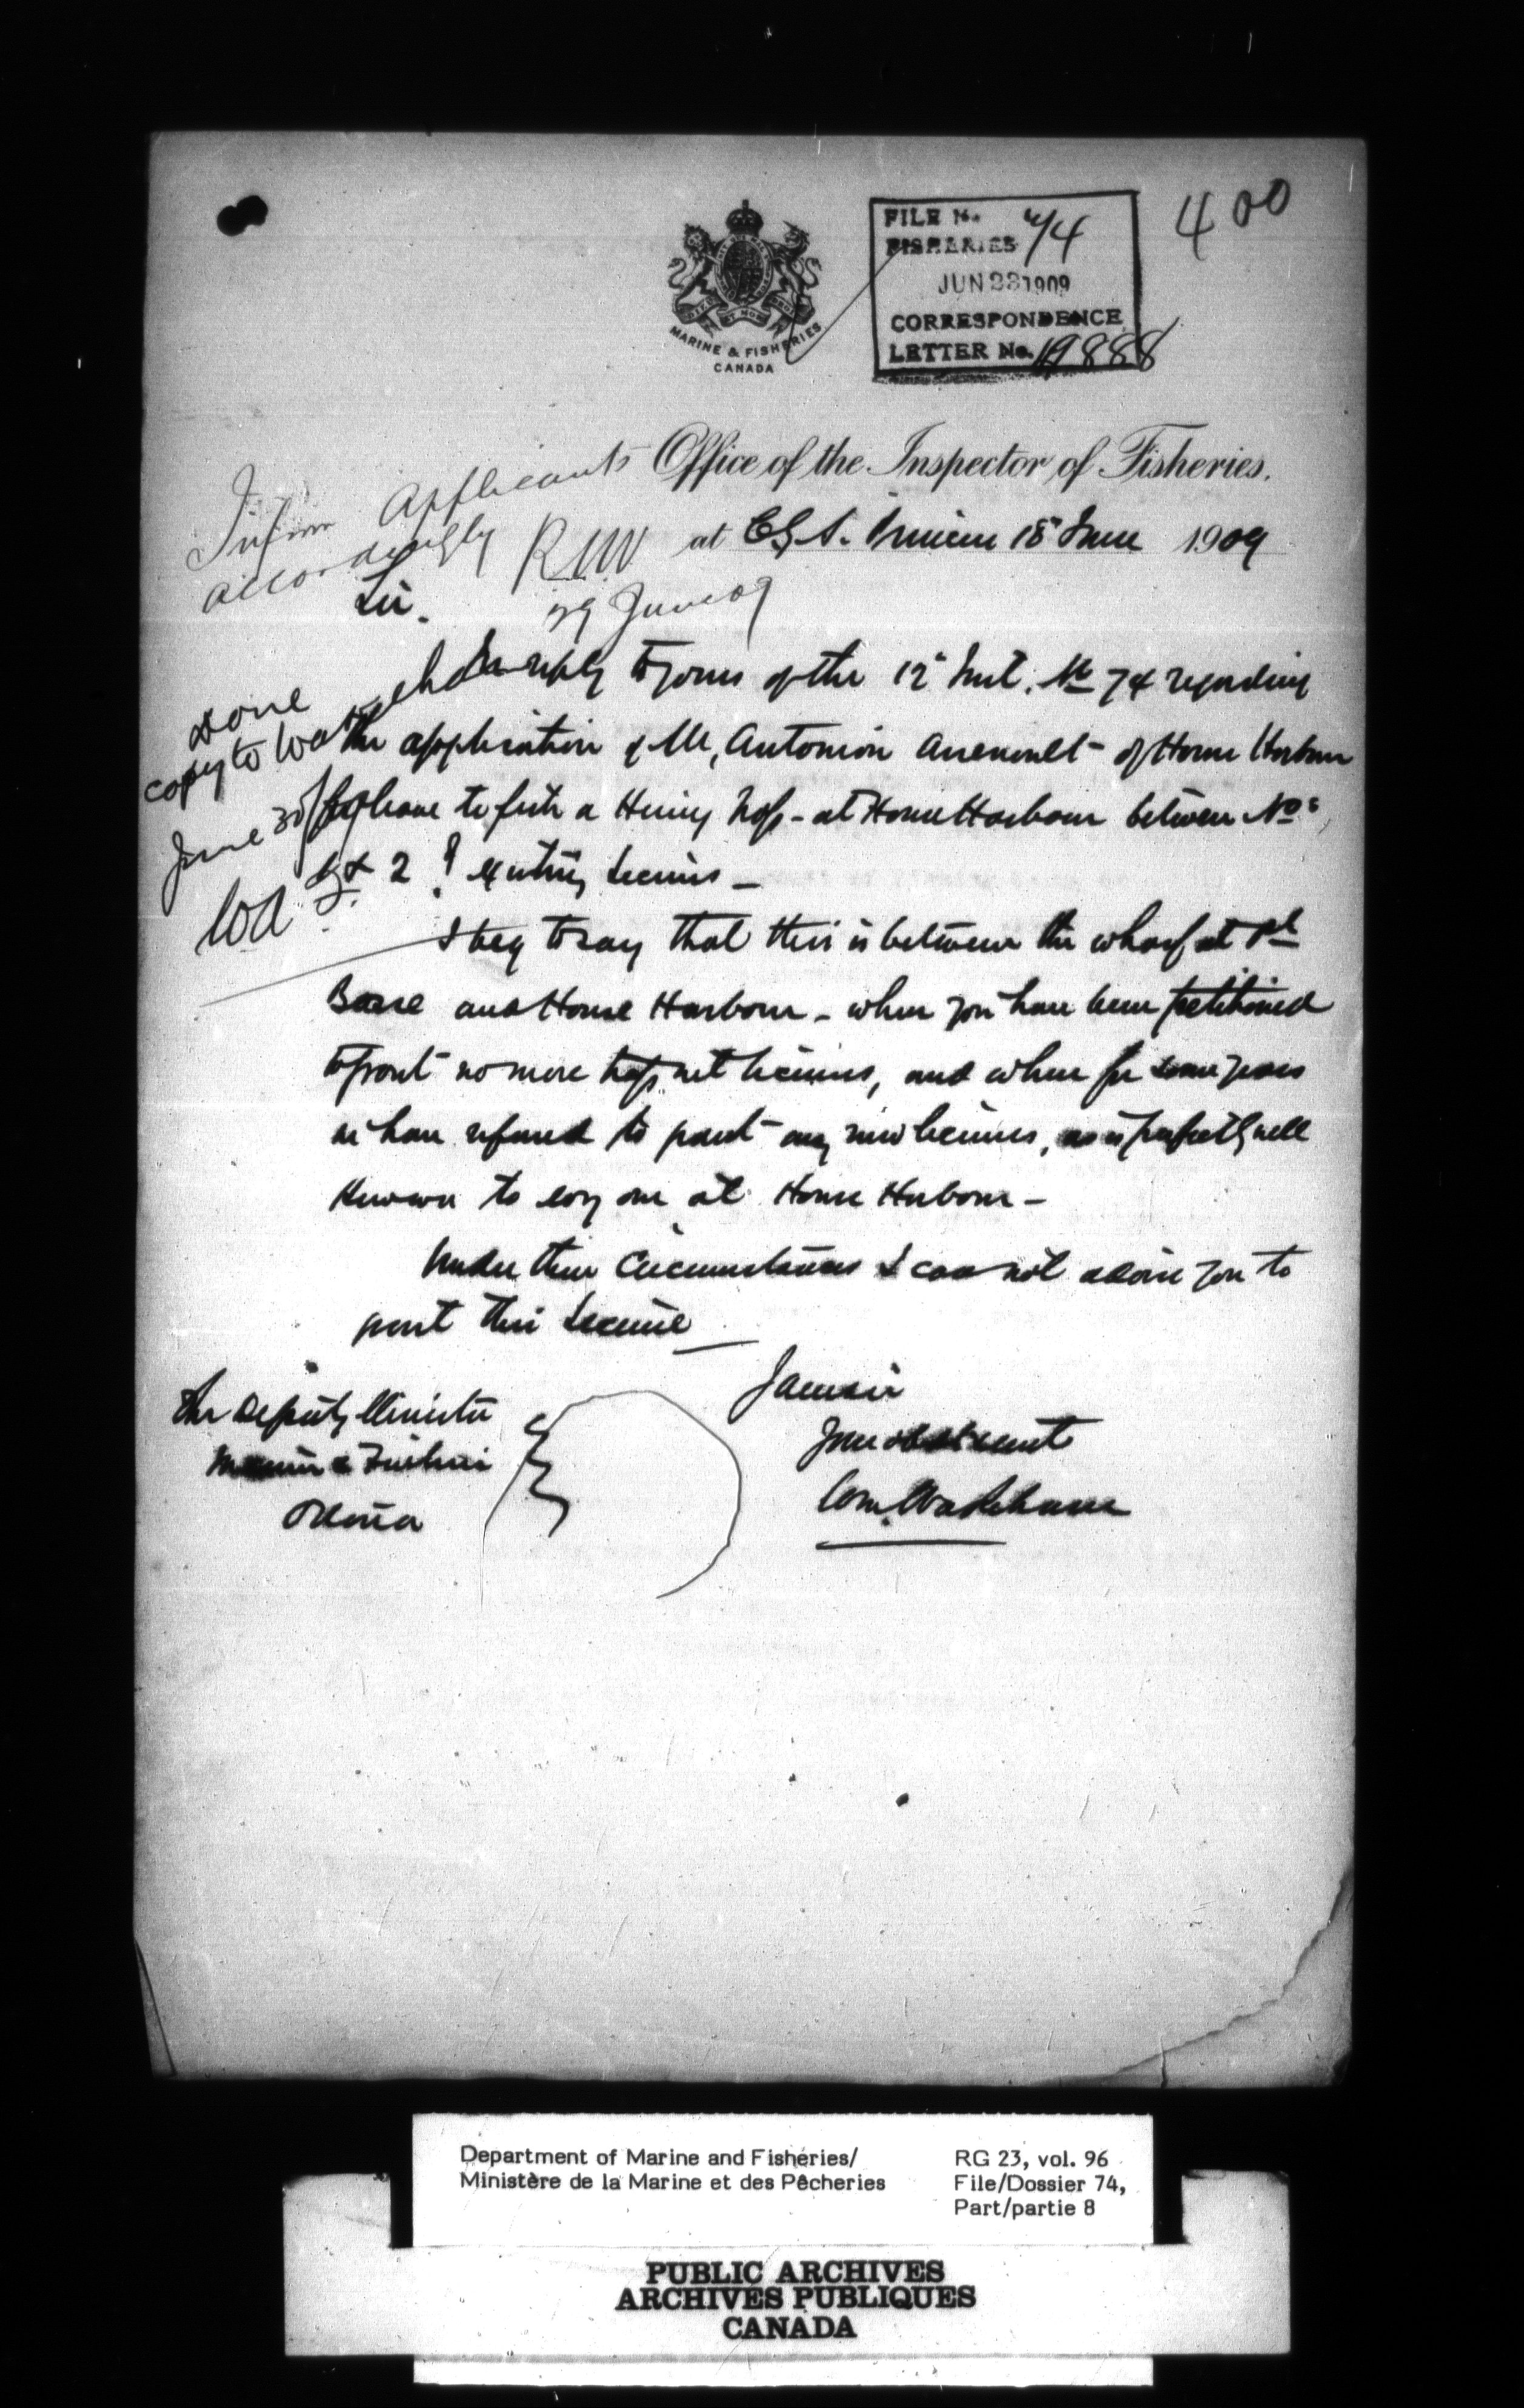 400
FILE No. 74
FISHERIES
JUN 23 1909
CORRESPONDENCE
LETTER No. 19888
MARINE & FISHERIES
CANADA
Office of the Inspector of Fisheries.
at C.G.S. 18" June 1909
Inform Applicants
accordingly RNV
29 June 09
Sir.
In reply to yours of the 12" Inst. No 74 regarding
the application of Mr, Antonin Arsenault of House Harbour
for leave to fish a Herring trap - at House Harbour between Nos
& 2 existing Licenses -
Done
copy to Wakeham
June 30/09
I beg to say that this is between the wharf at Pt
Basse and House Harbour - where you have been petitioned
to grant no more trap net licenses, and where for some years
we have refused to grant any new licenses, as is perfectly well
known to every one at House Harbour -
Under these Circumstances I can not advise you to
grant this License
I am sir
Your obt servant
Wm. Wakeham
The Deputy Minister
Marine & Fisheries
Ottawa
Department of Marine and Fisheries/
Ministère de la Marine et des Pêcheries
RG 23, vol. 96
File/Dossier 74,
Part/partie 8
PUBLIC ARCHIVES
ARCHIVES PUBLIQUES
CANADA